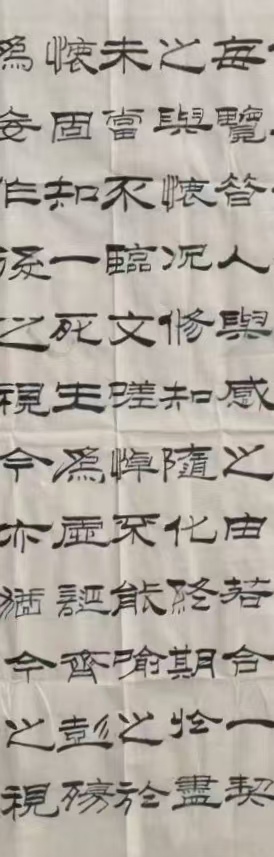 每覽昔人興感之由若合一契
之興懷况修知隨化終期於盡
未當不臨文嗟悼不能喻之於
懷固知一死生爲虛誕齊彭殤
爲妄作後之視今亦猶今之視